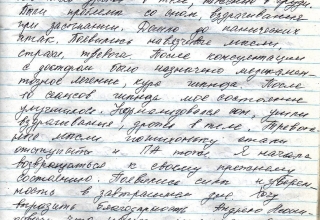 в теле, тяжесть в груди.
при засыпании. Дошло до панических
атак. Появились навязчивые мысли,
страхи, тревога. После консультации
с доктором было назначено медикамен-
тозное лечение, курс гипноза. После
10 сеансов гипноза мое состояние
улучшилось. Нормализовался сон, ушли
вздрагивания, дрожь в теле. Тревож-
ные мысли потихоньку стали
отступать. Я начала
возвращаться к своему прежнему
состоянию. Появились силы и уверен-
ность в завтрашнем дне. Хочу
выразить благодарность